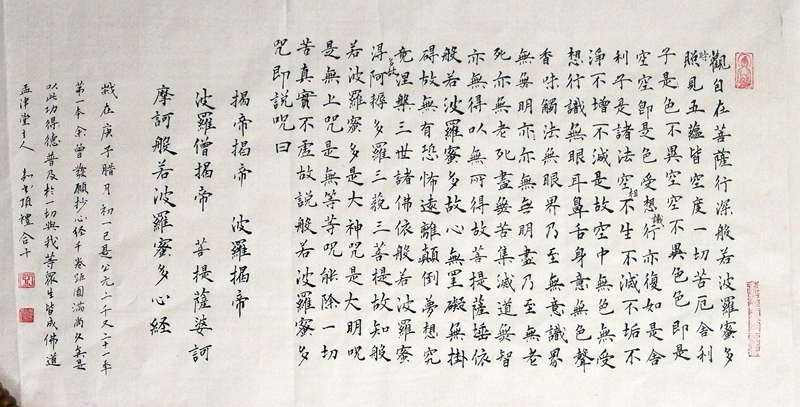 觀自在菩薩行深般若波羅蜜多
時照見五蘊皆空度一切苦厄舍利
子是色不異空空不異色色即是
空空即是色受想行識亦復如是舍
利子是諸法空相不生不滅不垢不
淨不增不減是故空中無色無受
想行識無眼耳鼻舌身意無色聲
香味觸法無眼界乃至無意識界
無無明亦無無明盡乃至無老
死亦無老死盡無苦集滅道無智
亦無得以無所得故菩提薩埵依
般若波羅蜜多故心無罣礙無掛
碍故無有恐怖遠離顛倒夢想究
竟涅槃三世諸佛依般若波羅蜜
多故淂阿耨多羅三藐三菩提故知般
若波羅蜜多是大神咒是大明咒
是無上咒是無等等咒能除一切
苦真實不虛故說般若波羅蜜多
咒即說咒曰
揭帝揭帝 波羅揭帝
波羅僧揭帝 菩提薩婆訶
摩訶般若波羅蜜多心經
在庚子腊月初一已是公元二千又二十一年
第一本余曾發願抄心經千卷距圓滿尚久矣是
以此功得德普及於一切與我等眾生皆成佛道
孟津堂主人 頂禮合十